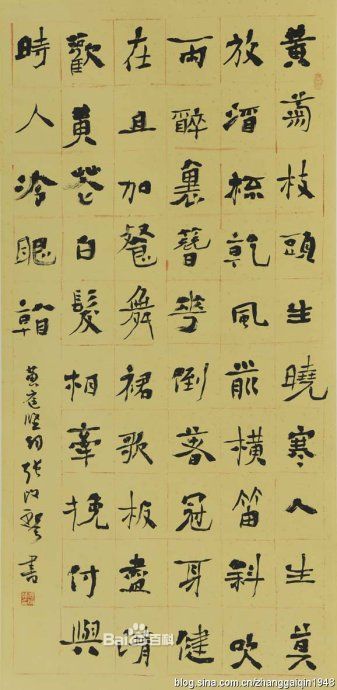 黄菊枝頭生曉寒人生莫
放酒杯乾風前橫笛斜吹
雨醉裏簪花倒著冠身健
在且加餐舞裙歌板盡情
歡黄花白髮相牽挽付與
時人冷眼看
黄庭堅詞张改琴書
Bai百科
blog.sina.com.cn/zhanggaiqin1948